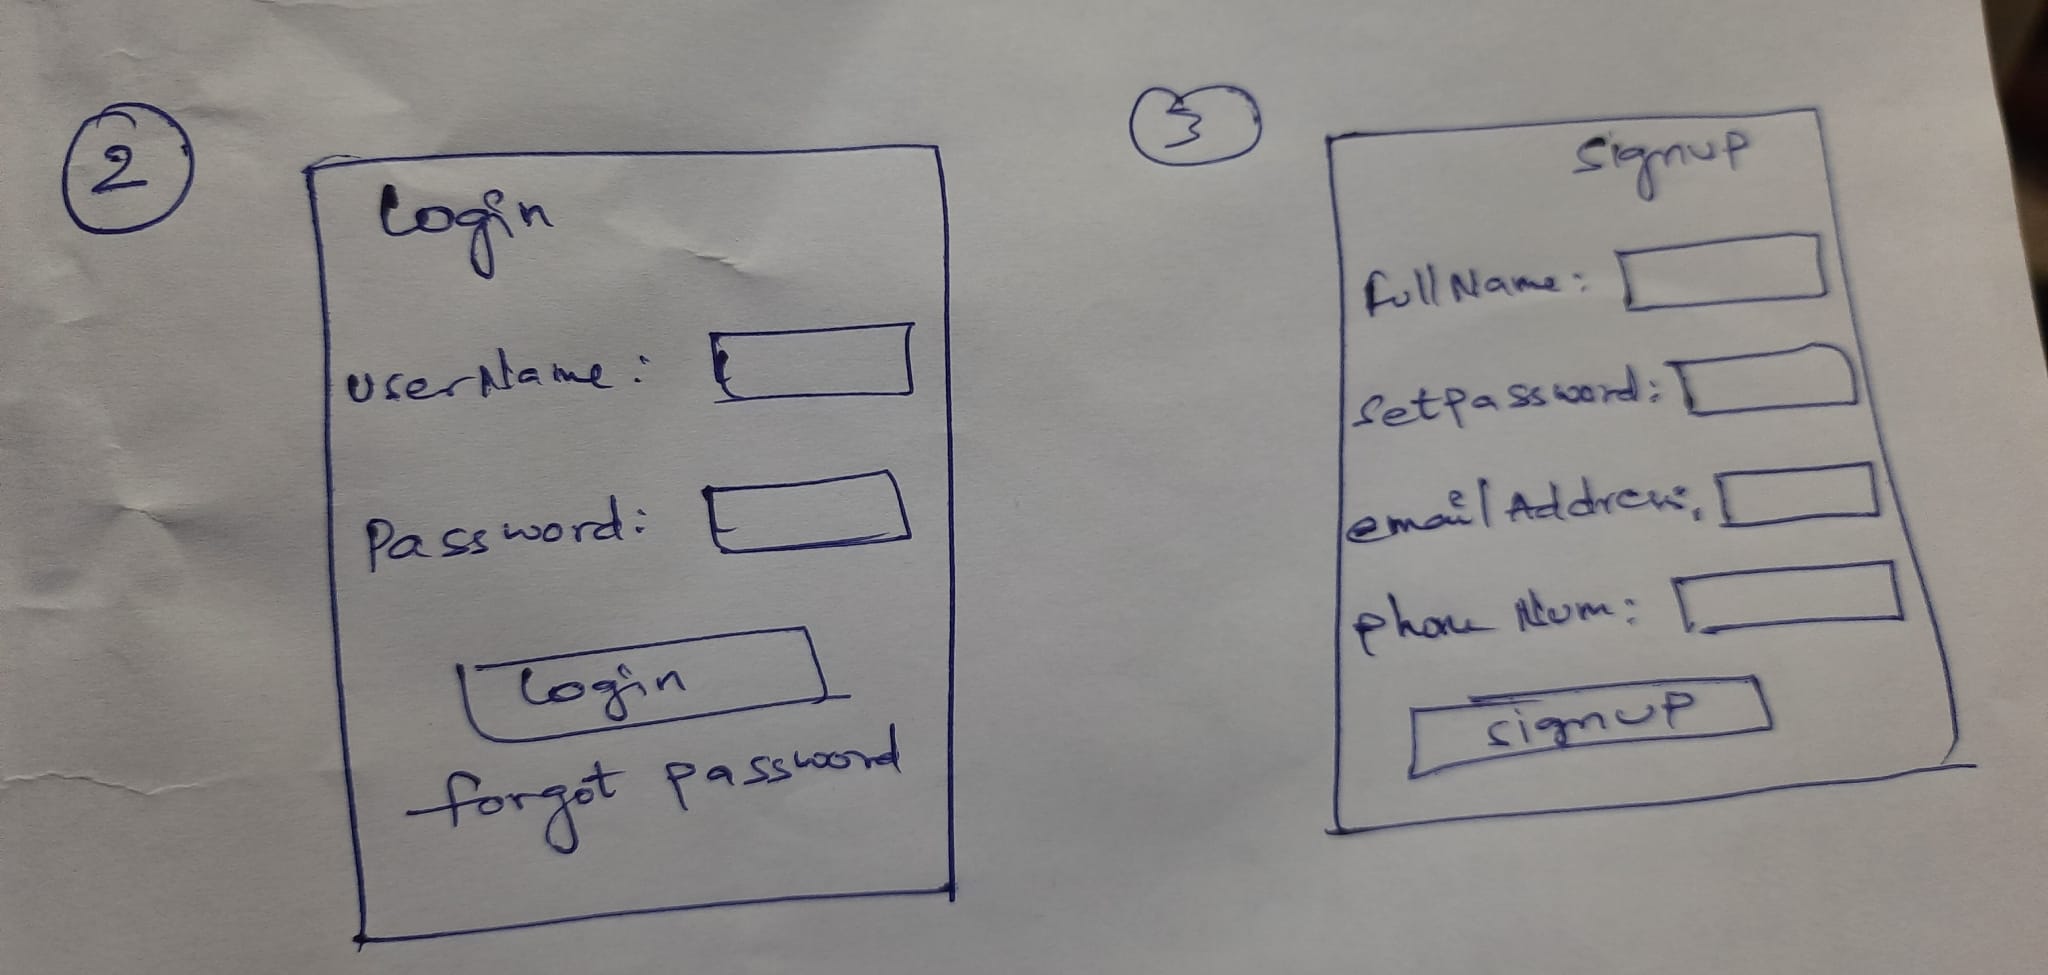 2
Login
UserName:
Password:
Login
forgot password
3
Signup
FullName:
Setpassword:
email Address:
phone Num:
signup